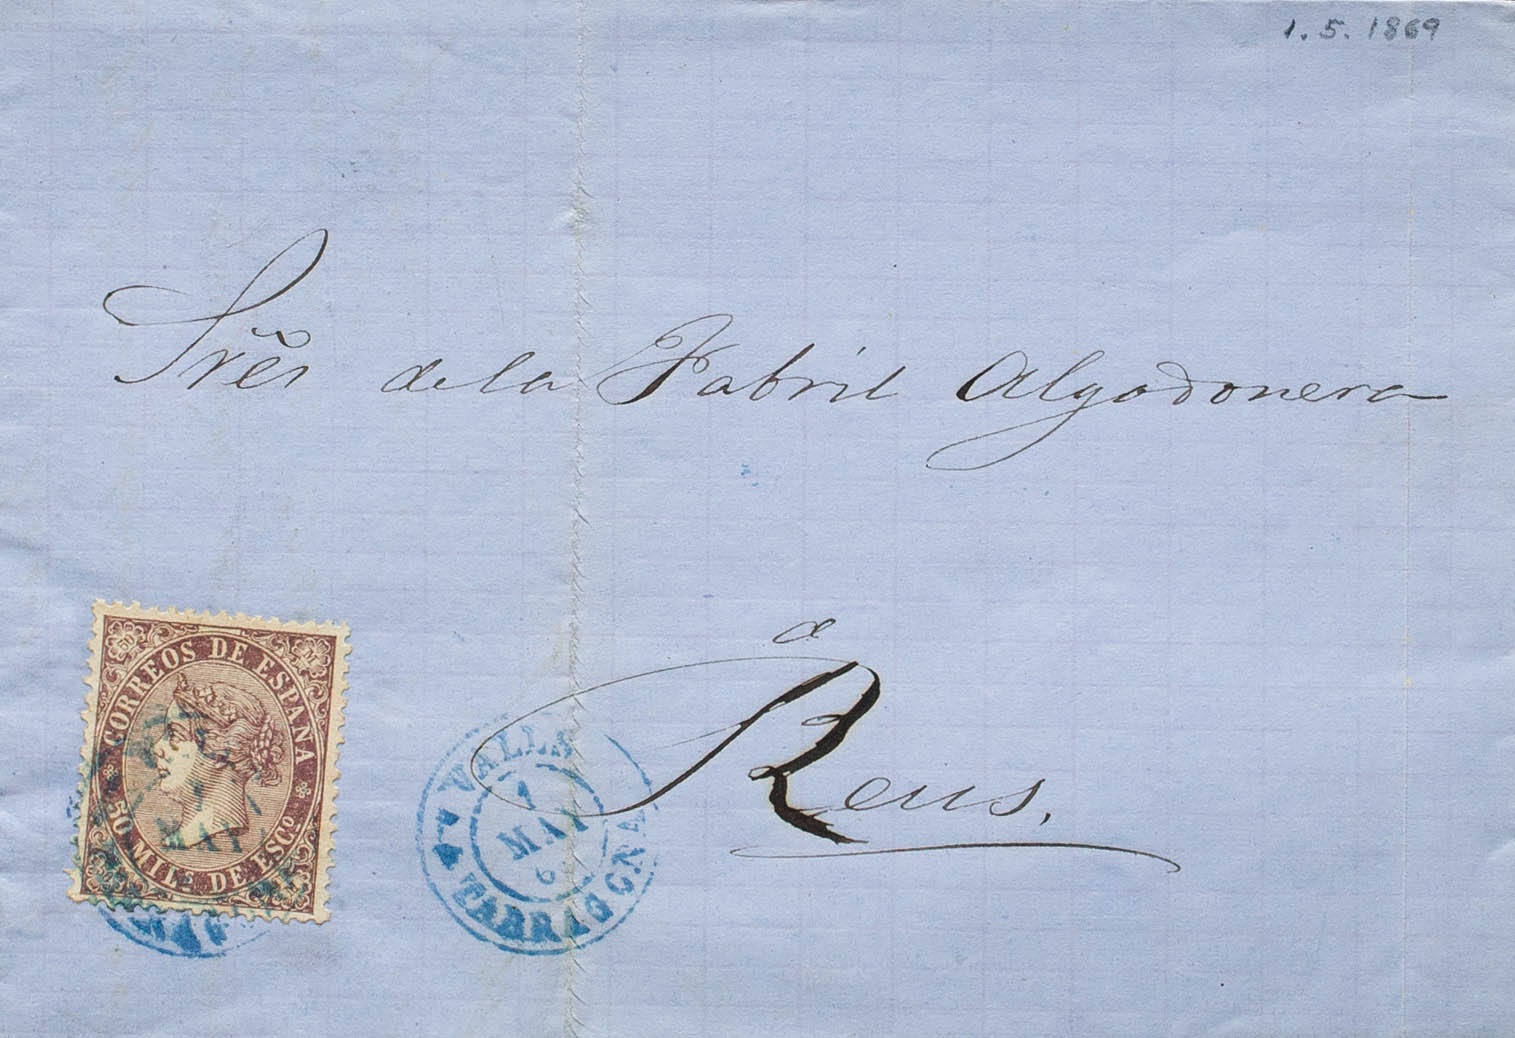 1.5.1869
Srẽs de la Fabril Algodonera
á
Reus.
CORREOS DE ESPAÑA
50 MILS DE ESCO
VALLS
1
MAY
6
TARRAGONA
MAY